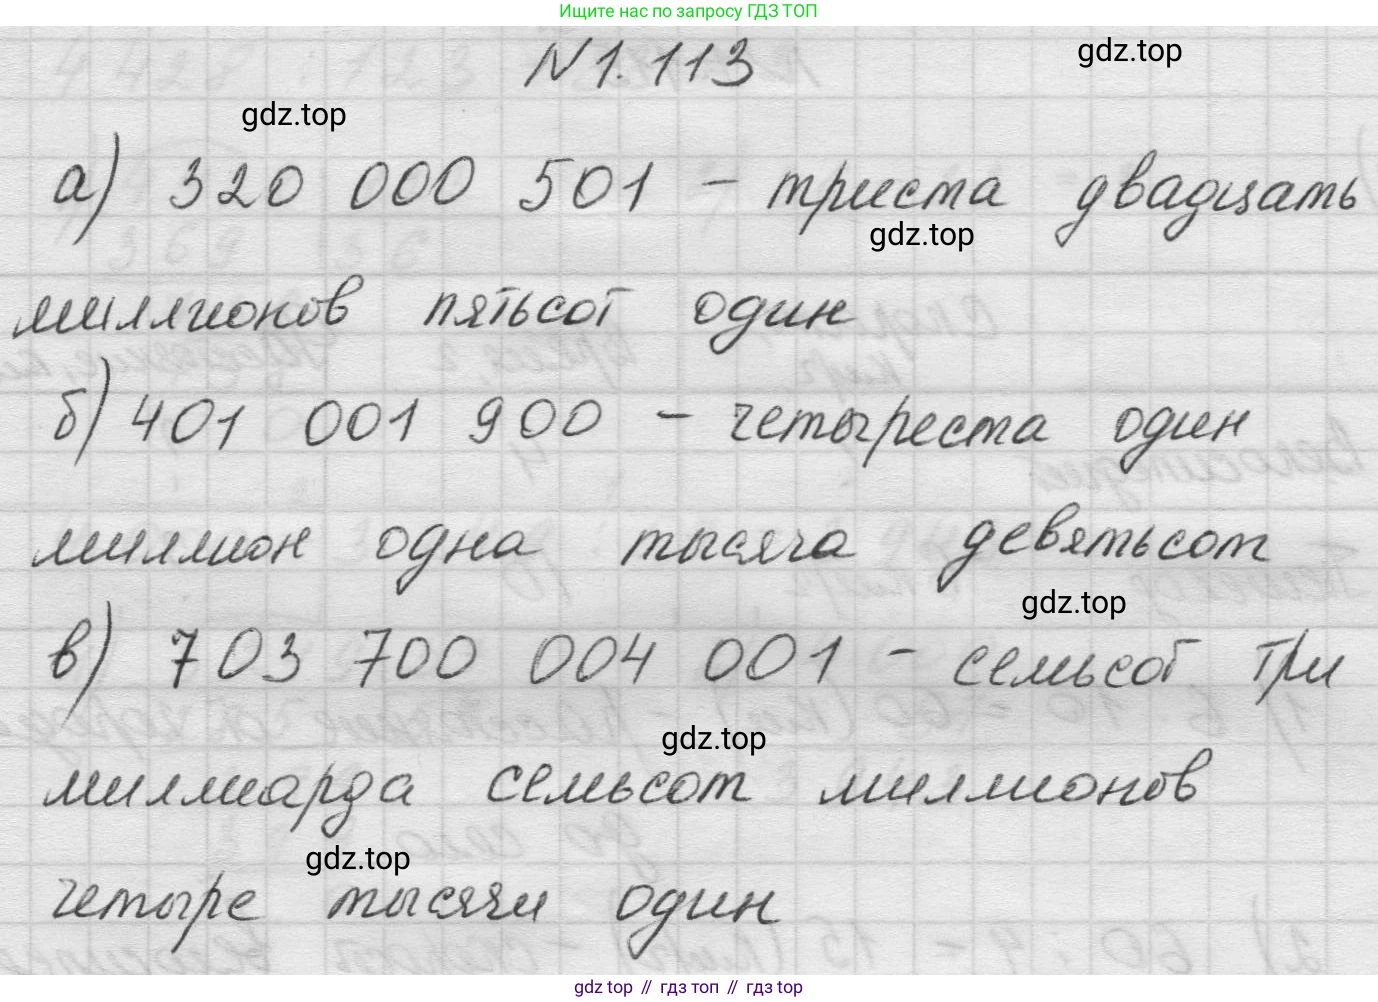 Ищите нас по запросу ГДЗ ТОП
N 1.113
gdz.top
gdz.top
а) 320 000 501 – триста двадцать
gdz.top
миллионов пятьсот один
б) 401 001 900 – четыреста один
миллион одна тысяча девятьсот
gdz.top
в) 703 700 004 001 – семьсот три
gdz.top
миллиарда семьсот миллионов
gdz.top
четыре тысячи один
gdz top // гдз топ // гдз top